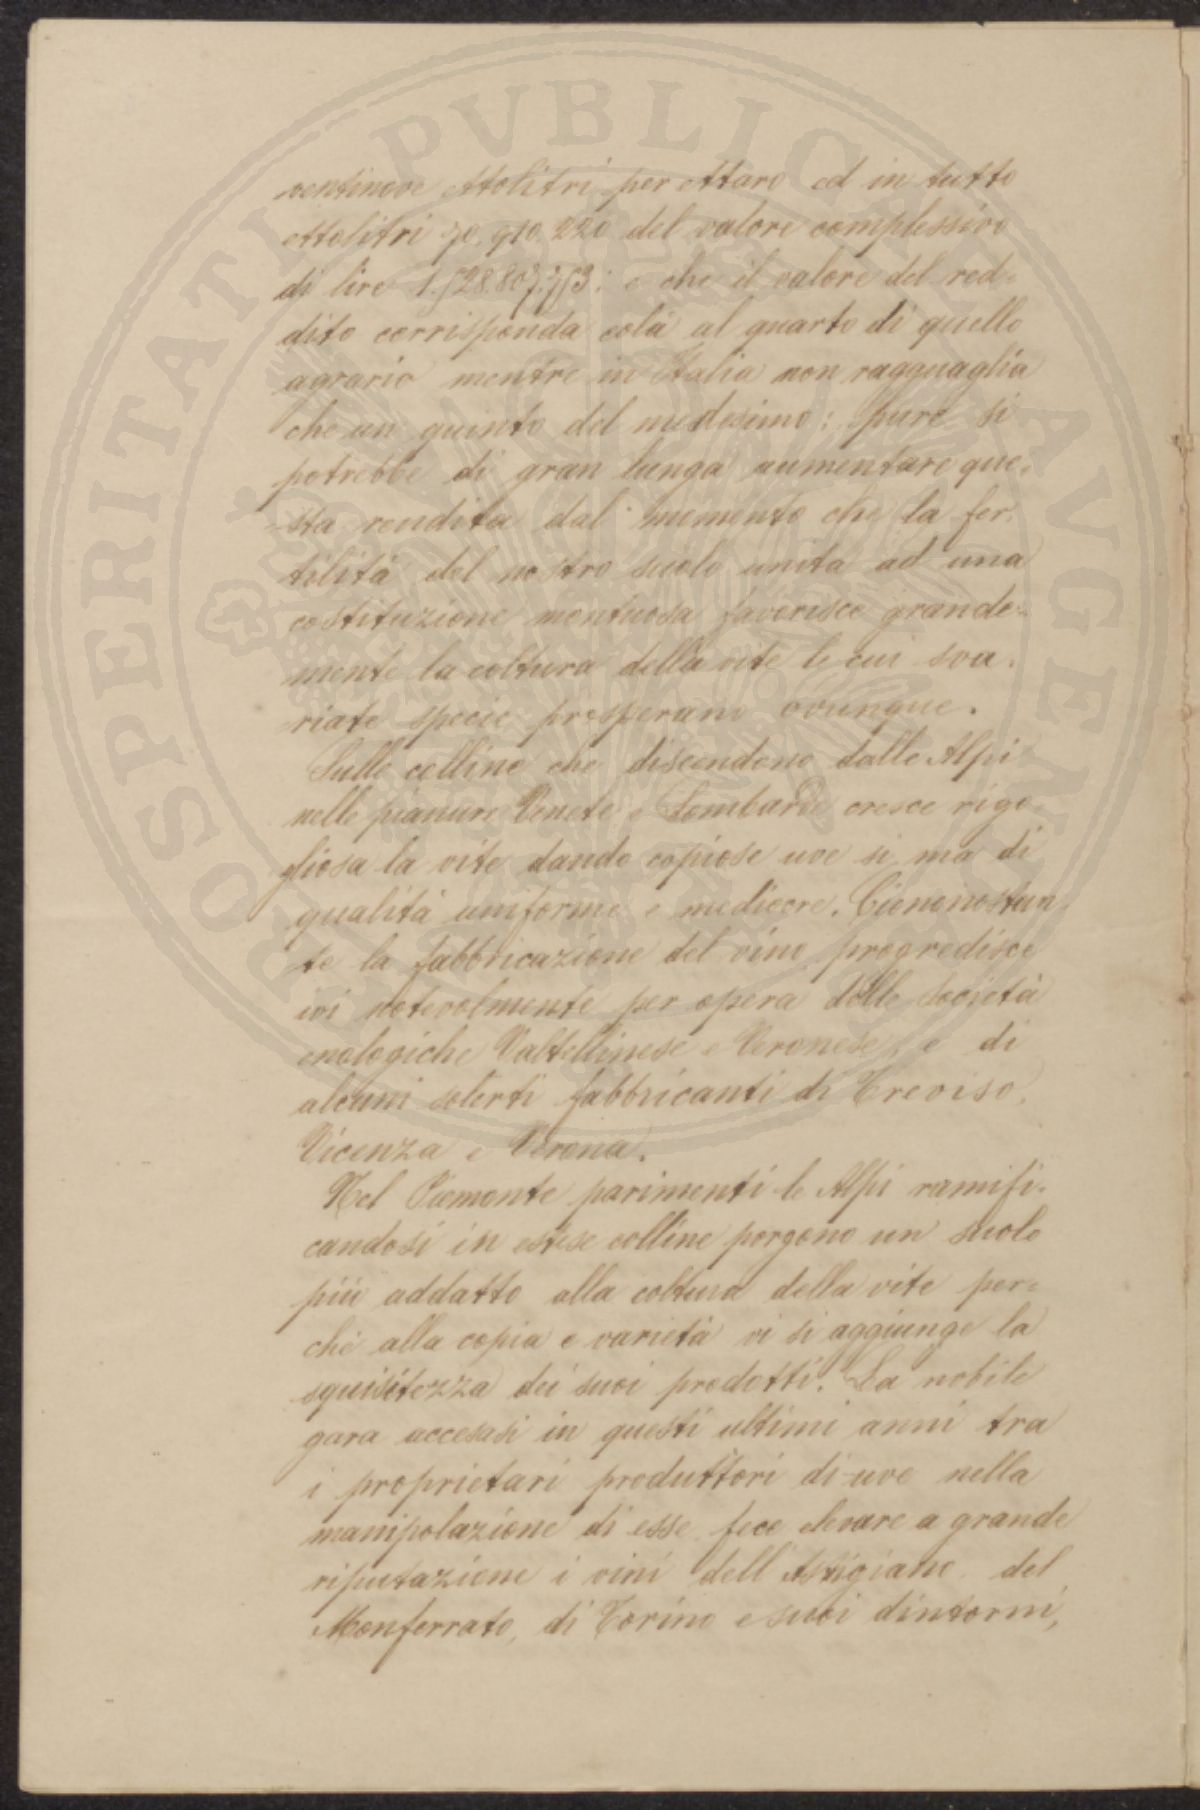 ventinove ettolitri per ettaro ed in tutto
ettolitri 70.910.220 del valore complessivo
di lire 1.528.807.753: e che il valore del red=
dito corrisponda colà al quarto di quello
agrario mentre in Italia non ragguaglia
che un quinto del medesimo: pure si
potrebbe di gran lunga aumentare que=
sta rendita dal momento che la fer
tilità del nostro suolo unita ad una
costituzione montuosa favorisce grande=
mente la coltura della vite le cui sva.
riate specie prosperano ovunque.
Sulle colline che discendono dalle Alpi
nelle pianure Venete e Lombarde cresce rigo
gliosa la vite dando copiose uve si ma di
qualità uniforme e mediocre. Ciononostan
te la fabbricazione del vino progredisce
ivi notevolmente per opera delle società
enologiche Valtellinese e Veronese, e di
alcuni solerti fabbricanti di Treviso,
Vicenza e Verona.
Nel Piemonte parimenti le Alpi ramifi.
candosi in estese colline porgono un suolo
più addatto alla coltura della vite per=
chè alla copia e varietà vi si aggiunge la
squisitezza dei suoi prodotti. La nobile
gara accesasi in questi ultimi anni tra
i proprietari produttori di uve nella
manipolazione di esse fece elevare a grande
riputazione i vini dell'Astigiano, del
Monferrato, di Torino e suoi dintorni,
PROSPERITATI PVBLICAE AVGENDAE